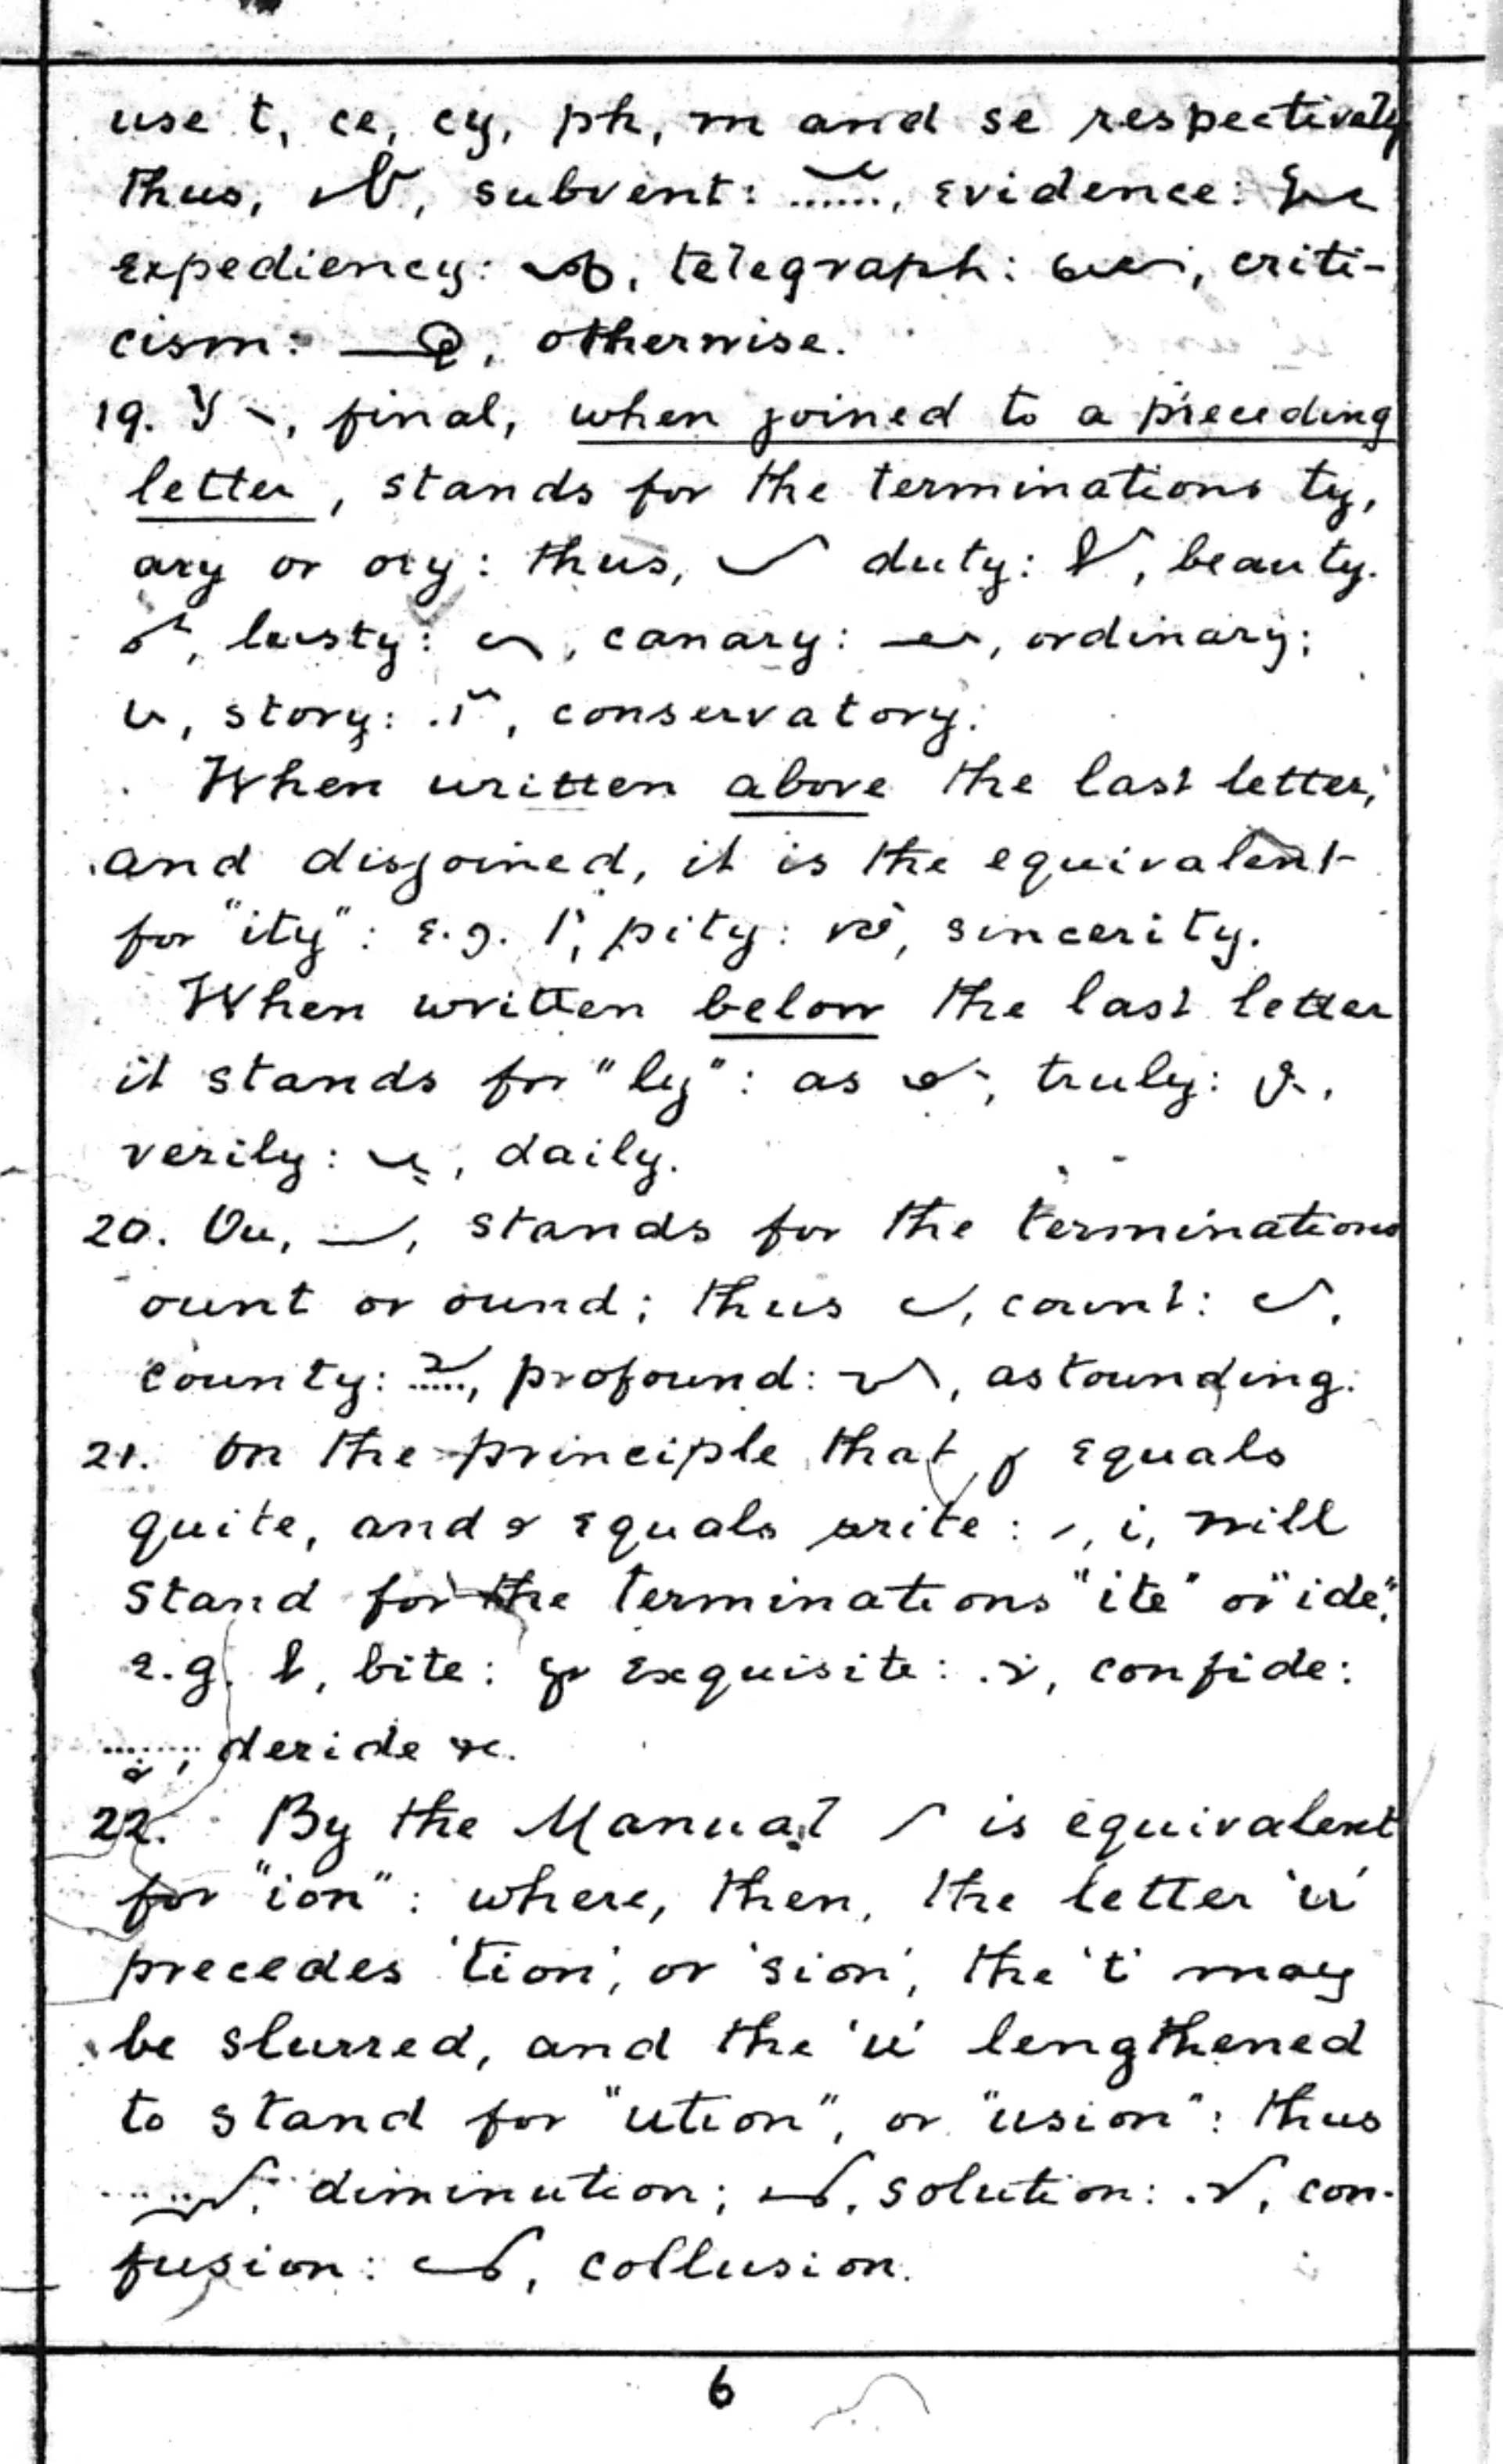 use t, ce, cy, ph, m and se respectively
thus, , subvent: ......, evidence:
expediency: , telegraph: , criti-
cism: , otherwise.
19. Y , final, when joined to a preceding
letter, stands for the terminations ty,
ary or ory: thus, duty: , beauty.
, lusty: , canary: , ordinary;
, story: , conservatory:
When written above the last letter,
and disjoined, it is the equivalent
for "ity": e.g. , pity: , sincerity.
When written below the last letter
it stands for "ly": as , truly: ,
verily: , daily.
20. Ou, , stands for the terminations
ount or ound; thus , count: ,
county: ....., profound: , astounding.
21. On the principle that equals
quite, and equals write: , i, will
stand for the terminations "ite" or "ide".
e.g. , bite: exquisite: , confide:
......., deride &c.
22. By the Manual is equivalent
for "ion": where, then, the letter 'u'
precedes 'tion', or 'sion', the 't' may
be slurred, and the 'u' lengthened
to stand for "ution", or "usion": thus
, diminution; , solution: , con-
fusion: , collusion.
6